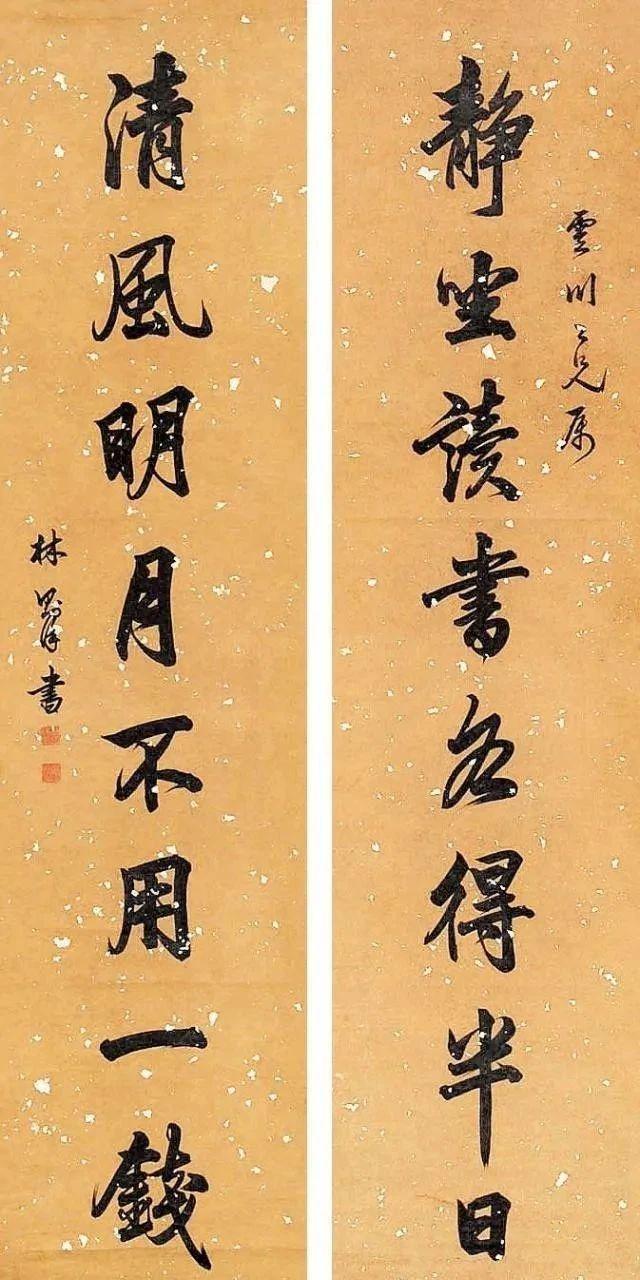 靜坐讀書各得半日
雲川仁兄屬
清風明月不用一錢
林則徐書